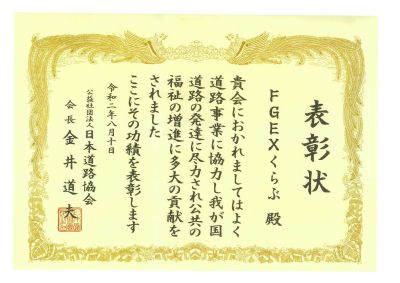 表彰状
FGEXくらぶ 殿
貴会におかれましてはよく
道路事業に協力し我が国
道路の発達に尽力され公共の
福祉の増進に多大の貢献を
されました
ここにその功績を表彰します
令和二年八月十日
公益社団法人日本道路協会
会長 金井道夫